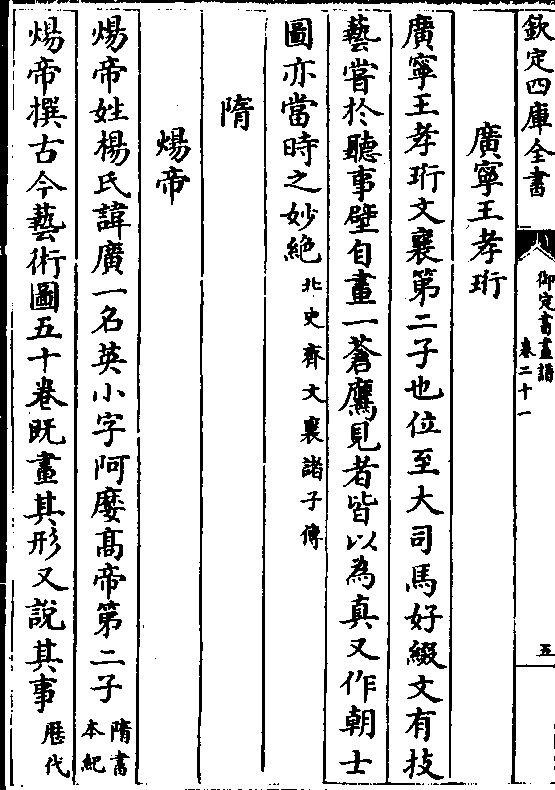 欽定四庫全書
御定書畫譜
卷二十一
五
廣寧王孝珩
廣寧王孝珩文襄第二子也位至大司馬好綴文有技
藝嘗於聽事壁自畫一蒼鷹見者皆以為真又作朝士
圖亦當時之妙絶北史齊文襄諸子傳
隋
煬帝
煬帝姓楊氏諱廣一名英小字阿㜷高帝第二子隋書本紀
煬帝撰古今藝術圖五十卷既畫其形又說其事歴代